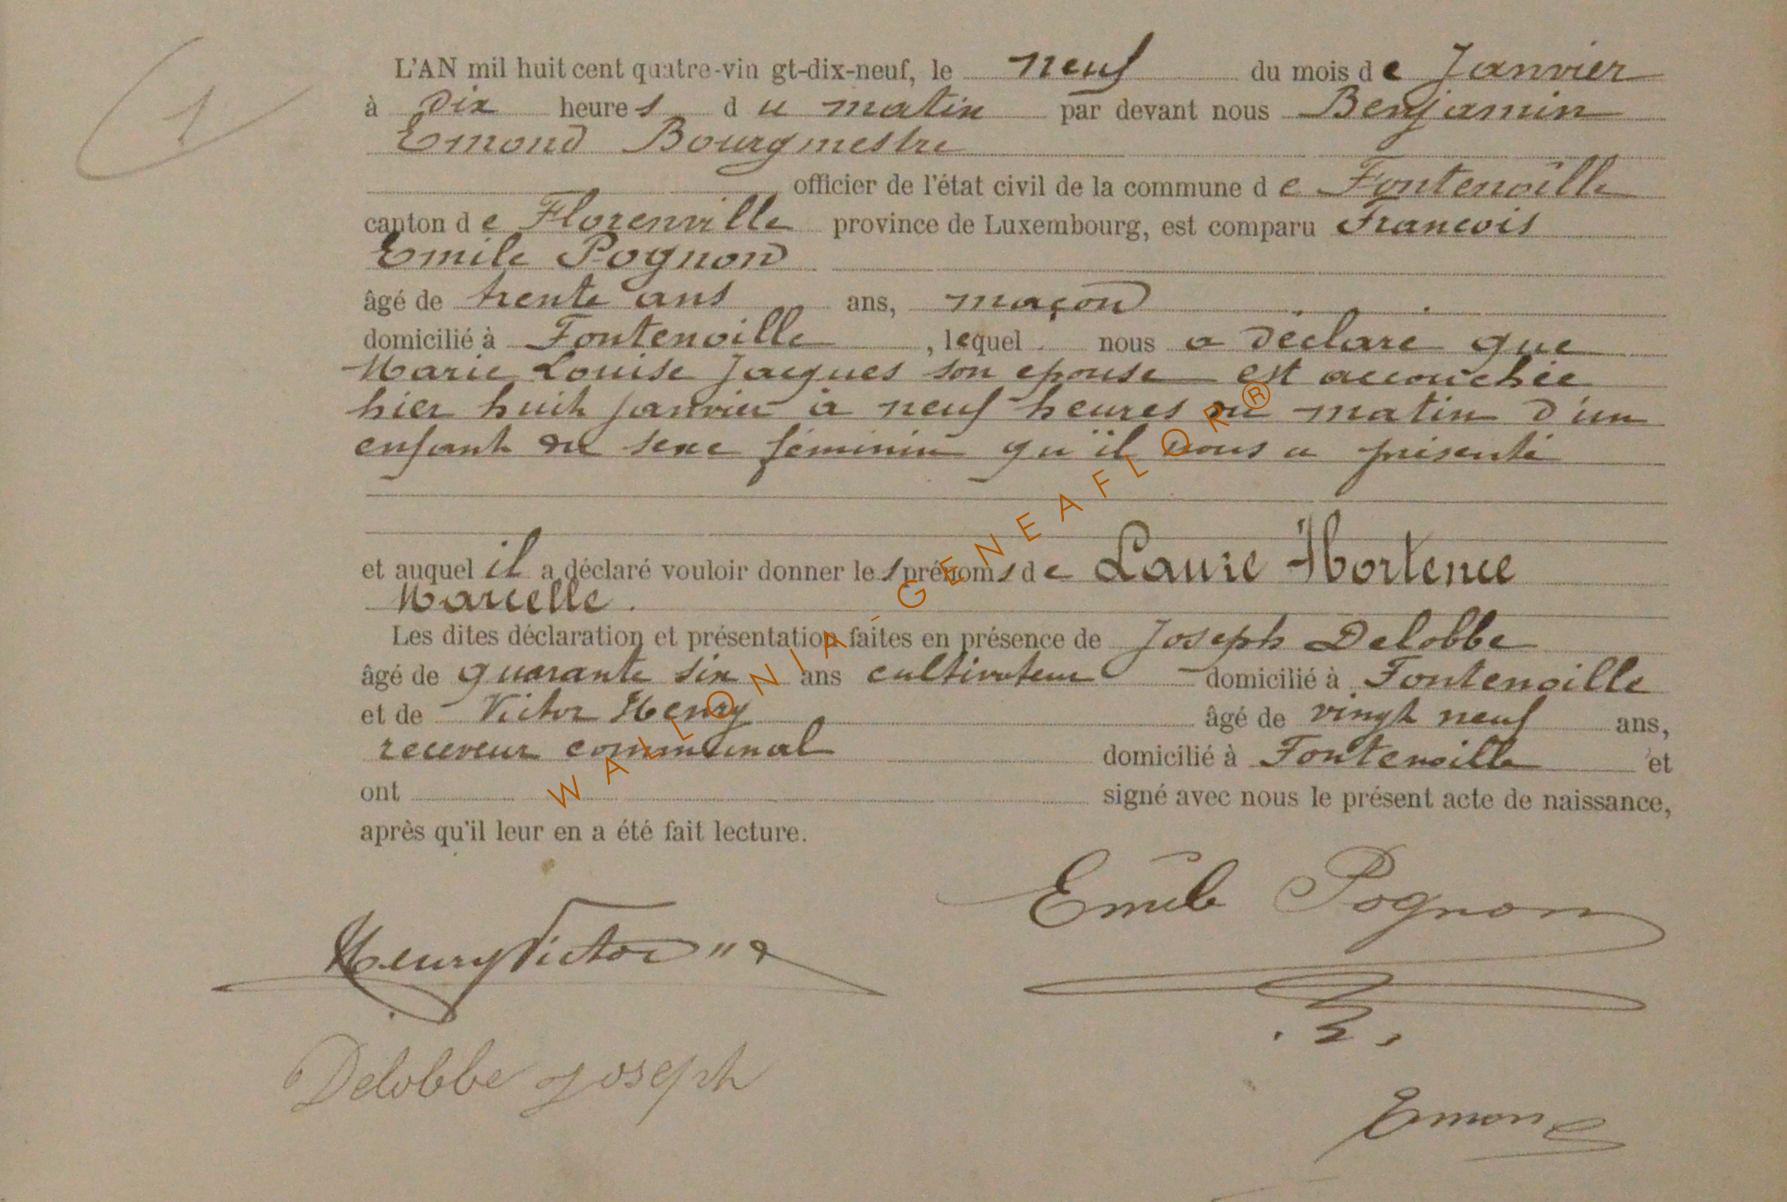 1
L'AN mil huit cent quatre-vin gt-dix-neuf, le neuf du mois de Janvier
à Dix heures du matin par devant nous Benjamin
Emond Bourgmestre
officier de l'état civil de la commune de Fontenoille
canton de Florenville province de Luxembourg, est comparu Francois
Emile Pognon
âgé de trente ans ans, maçon
domicilié à Fontenoille, lequel nous a déclaré que
Marie Louise Jacques son epouse est accouchée
hier huit janvier à neuf heures du matin d'un
enfant du sexe féminin qu'il nous a présenté
et auquel il a déclaré vouloir donner les prénoms de Laure Hortence
Marcelle.
Les dites déclaration et présentation faites en présence de Joseph Delobbe
âgé de quarante six ans cultivateur domicilié à Fontenoille
et de Victor Henry âgé de vingt neuf ans,
receveur communal domicilié à Fontenoille et
ont signé avec nous le présent acte de naissance,
après qu'il leur en a été fait lecture.
Emile Pognon
Henry Victor
Delobbe Joseph
Emond
WALLONIA-GENEAFLOR®